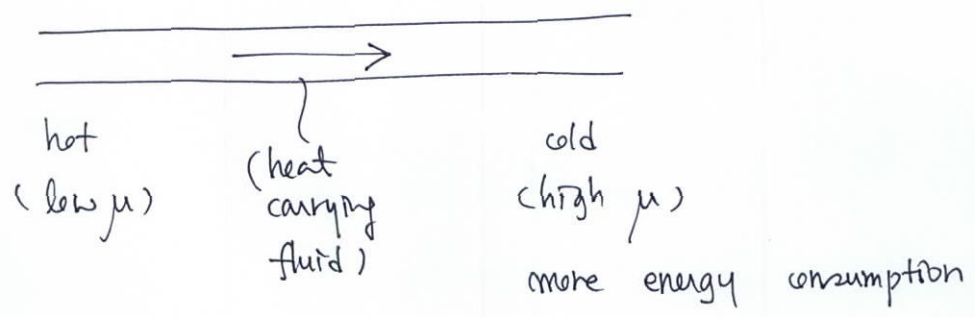 hot
(low μ)
(heat
carrying
fluid)
cold
(high μ)
more energy consumption